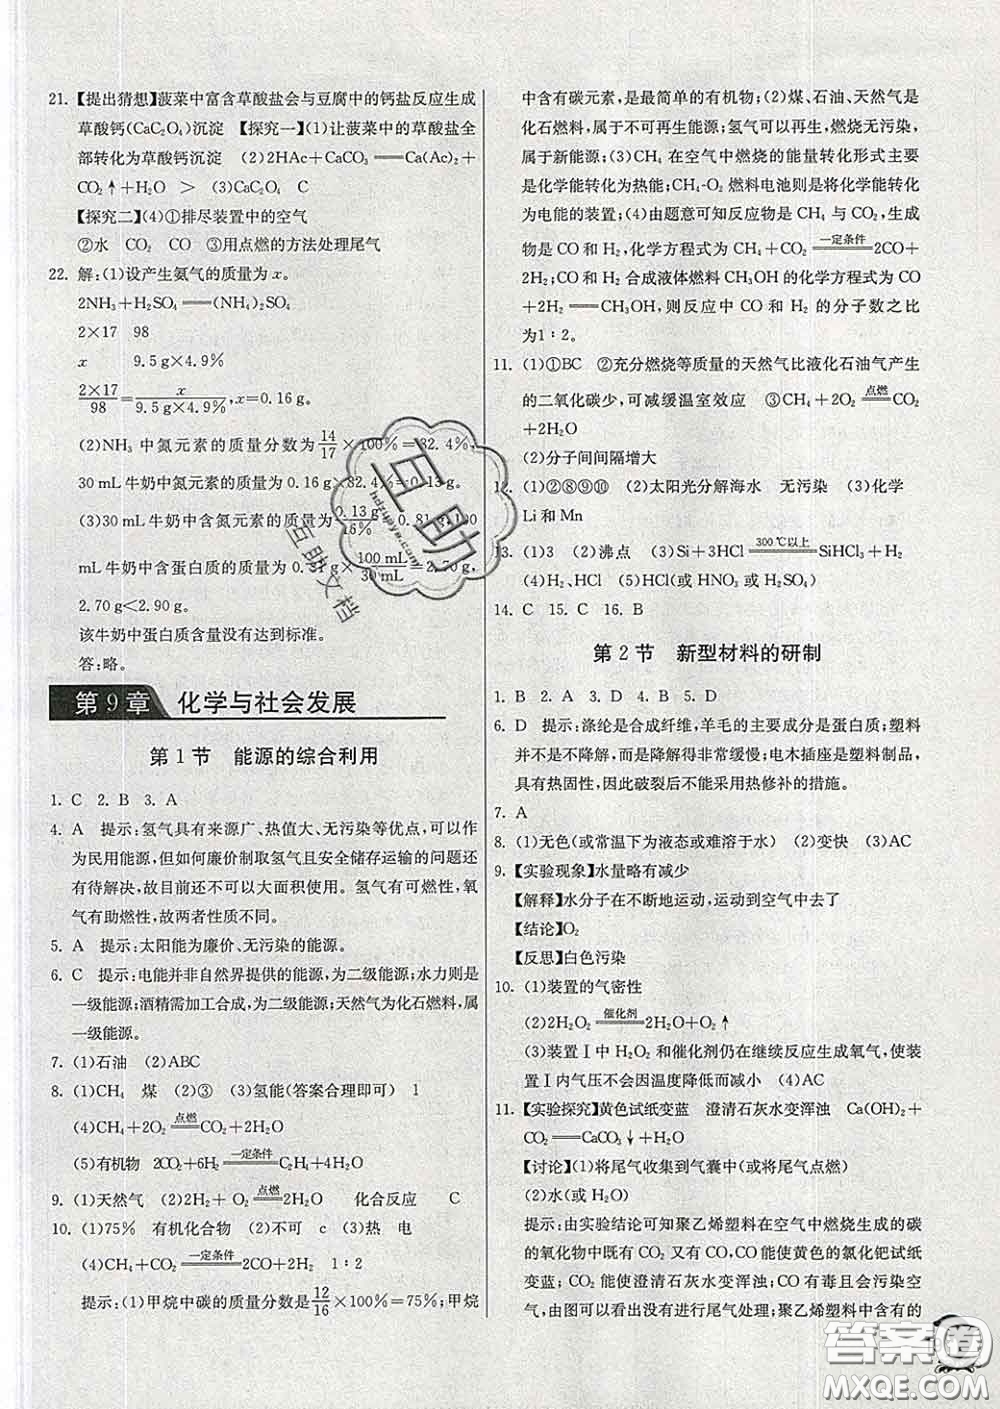 21. 【提出猜想】菠菜中富含草酸盐会与豆腐中的钙盐反应生成
草酸钙(CaC₂O₄)沉淀 【探究一】(1)让菠菜中的草酸盐全
部转化为草酸钙沉淀 (2)2HAc+CaCO₃══Ca(Ac)₂+
CO₂↑+H₂O > (3)CaC₂O₄ C
【探究二】(4)①排尽装置中的空气
②水 CO₂ CO ③用点燃的方法处理尾气
22. 解:(1)设产生氨气的质量为x。
2NH₃+H₂SO₄══(NH₄)₂SO₄
2×17 98
x 9.5 g×4.9%
2×17/98=x/(9.5 g×4.9%),x=0.16 g。
(2)NH₃ 中氮元素的质量分数为14/17×100%=82.4%,
30 mL牛奶中氮元素的质量为0.16 g×82.4%=0.13 g。
(3)30 mL牛奶中含氮元素的质量为0.13 g/16%=0.81 g,100
mL牛奶中含蛋白质的质量为0.81 g×100 mL/30 mL=2.70 g,
2.70 g<2.90 g。
该牛奶中蛋白质含量没有达到标准。
答:略。
第9章 化学与社会发展
第1节 能源的综合利用
1. C 2. B 3. A
4. A 提示:氢气具有来源广、热值大、无污染等优点,可以作
为民用能源,但如何廉价制取氢气且安全储存运输的问题还
有待解决,故目前还不可以大面积使用。氢气有可燃性,氧
气有助燃性,故两者性质不同。
5. A 提示:太阳能为廉价、无污染的能源。
6. C 提示:电能并非自然界提供的能源,为二级能源;水力则是
一级能源;酒精需加工合成,为二级能源;天然气为化石燃料,属
一级能源。
7. (1)石油 (2)ABC
8. (1)CH₄ 煤 (2)③ (3)氢能(答案合理即可) 1
(4)CH₄+2O₂ ═点燃═ CO₂+2H₂O
(5)有机物 2CO₂+6H₂ ═一定条件═ C₂H₄+4H₂O
9. (1)天然气 (2)2H₂+O₂ ═点燃═ 2H₂O 化合反应 C
10. (1)75% 有机化合物 (2)不可 c (3)热 电
(4)CH₄+CO₂ ═一定条件═ 2CO+2H₂ 1∶2
提示:(1)甲烷中碳的质量分数是12/16×100%=75%;甲烷
中含有碳元素,是最简单的有机物;(2)煤、石油、天然气是
化石燃料,属于不可再生能源;氢气可以再生,燃烧无污染,
属于新能源;(3)CH₄ 在空气中燃烧的能量转化形式主要
是化学能转化为热能;CH₄-O₂ 燃料电池则是将化学能转化
为电能的装置;(4)由题意可知反应物是 CH₄ 与 CO₂,生成
物是 CO 和 H₂,化学方程式为 CH₄+CO₂ ═一定条件═ 2CO+
2H₂;CO 和 H₂ 合成液体燃料 CH₃OH 的化学方程式为 CO
+2H₂══CH₃OH,则反应中 CO 和 H₂ 的分子数之比
为1∶2。
11. (1)①BC ②充分燃烧等质量的天然气比液化石油气产生
的二氧化碳少,可减缓温室效应 ③CH₄+2O₂ ═点燃═ CO₂
+2H₂O
(2)分子间间隔增大
12. (1)②⑧⑨⑩ (2)太阳光分解海水 无污染 (3)化学
Li和Mn
13. (1)3 (2)沸点 (3)Si+3HCl ═300℃以上═ SiHCl₃+H₂
(4)H₂、HCl (5)HCl(或 HNO₃ 或 H₂SO₄)
14. C 15. C 16. B
第2节 新型材料的研制
1. B 2. D 3. C 4. B 5. D
6. D 提示:涤纶是合成纤维,羊毛的主要成分是蛋白质;塑料
并不是不降解,而是降解得非常缓慢;电木插座是塑料制品,
具有热固性,因此破裂后不能采用热修补的措施。
7. A
8. (1)无色(或常温下为液态或难溶于水) (2)变快 (3)AC
9. 【实验现象】水量略有减少
【解释】水分子在不断地运动,运动到空气中去了
【结论】O₂
【反思】白色污染
10. (1)装置的气密性
(2)2H₂O₂ ═催化剂═ 2H₂O+O₂↑
(3)装置Ⅰ中 H₂O₂ 和催化剂仍在继续反应生成氧气,使装
置Ⅰ内气压不会因温度降低而减小 (4)AC
11. 【实验探究】黄色试纸变蓝 澄清石灰水变浑浊 Ca(OH)₂+
CO₂══CaCO₃↓+H₂O
【讨论】(1)将尾气收集到气囊中(或将尾气点燃)
(2)水(或 H₂O)
提示:由实验结论可知聚乙烯塑料在空气中燃烧生成的碳
的氧化物中既有 CO₂ 又有 CO,CO 能使黄色的氯化钯试纸
变蓝;CO₂ 能使澄清石灰水变浑浊;CO 有毒且会污染空
气,由图可以看出没有进行尾气处理;聚乙烯塑料中含有的
互助
hdzuoye.com
互助文档
答案圈
MXQE.COM